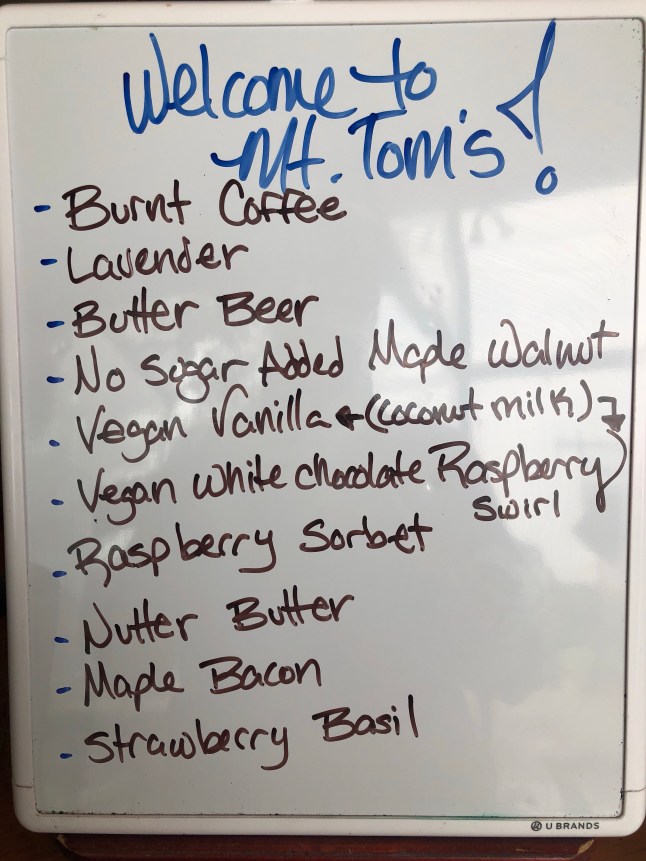 Welcome to
Mt. Tom's!
- Burnt Coffee
- Lavender
- Butter Beer
- No Sugar Added Maple Walnut
- Vegan Vanilla ← (coconut milk) ↴
- Vegan White Chocolate Raspberry
Swirl
- Raspberry Sorbet
- Nutter Butter
- Maple Bacon
- Strawberry Basil
U BRANDS